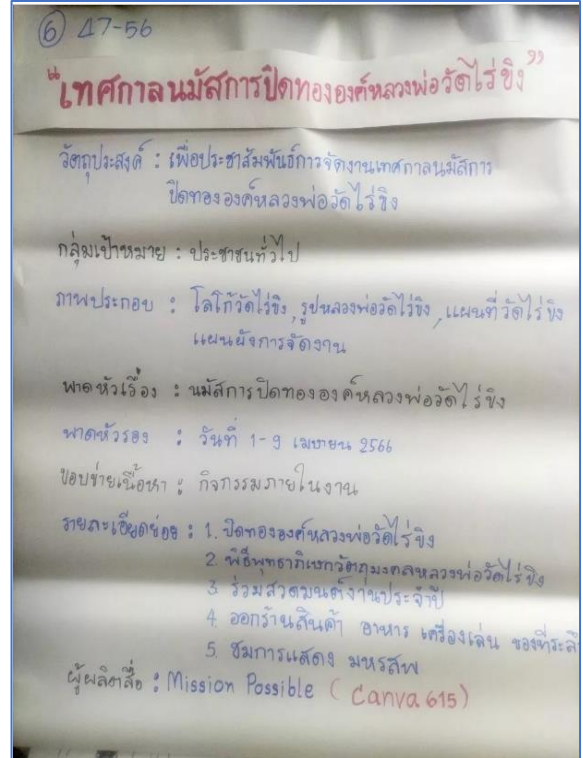 ⑥ 47-56
"เทศกาลนมัสการปิดทององค์หลวงพ่อวัดไร่ขิง"
วัตถุประสงค์ : เพื่อประชาสัมพันธ์การจัดงานเทศกาลนมัสการ
ปิดทององค์หลวงพ่อวัดไร่ขิง
กลุ่มเป้าหมาย : ประชาชนทั่วไป
ภาพประกอบ : โลโก้วัดไร่ขิง, รูปหลวงพ่อวัดไร่ขิง, แผนที่วัดไร่ขิง
แผนผังการจัดงาน
พาดหัวเรื่อง : นมัสการปิดทององค์หลวงพ่อวัดไร่ขิง
พาดหัวรอง : วันที่ 1-9 เมษายน 2566
ขอบข่ายเนื้อหา : กิจกรรมภายในงาน
รายละเอียดย่อย : 1. ปิดทององค์หลวงพ่อวัดไร่ขิง
2. พิธีพุทธาภิเษกวัตถุมงคลหลวงพ่อวัดไร่ขิง
3 ร่วมสวดมนต์งานประจำปี
4 ออกร้านสินค้า อาหาร เครื่องเล่น
5. ชมการแสดง มหรสพ
ผู้ผลิตสื่อ : Mission Possible (Canva 615)